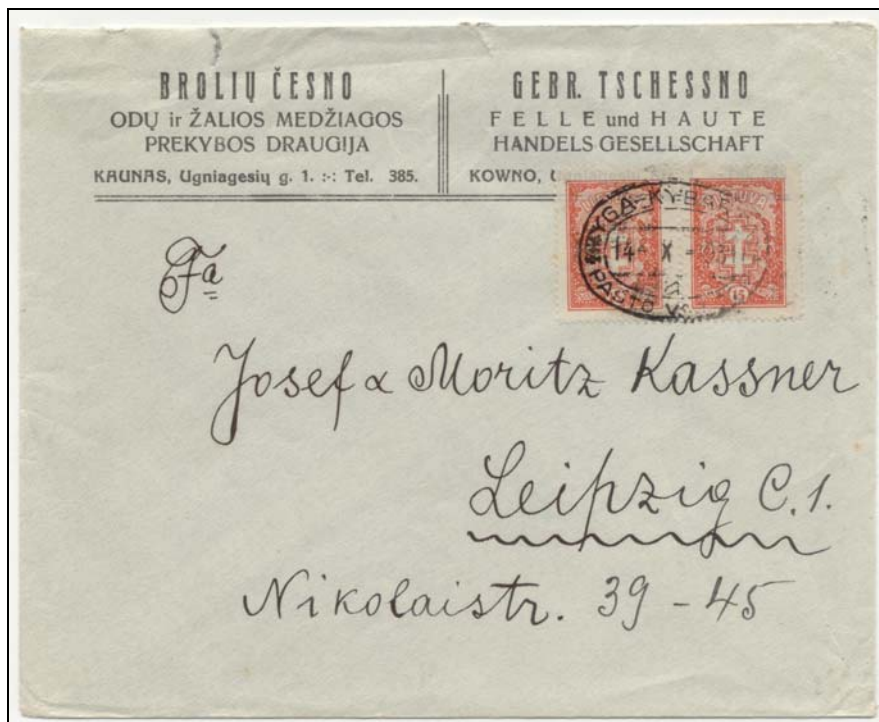 BROLIŲ ČESNO
ODŲ ir ŽALIOS MEDŽIAGOS
PREKYBOS DRAUGIJA
KAUNAS, Ugniagesių g. 1. :-: Tel. 385.
GEBR. TSCHESSNO
FELLE und HAUTE
HANDELS GESELLSCHAFT
KOWNO,
RYGA-KYBAR
14 X
PAŠTO
15
Fa
Josef & Moritz Kassner
Leipzig C. 1.
Nikolaistr. 39-45